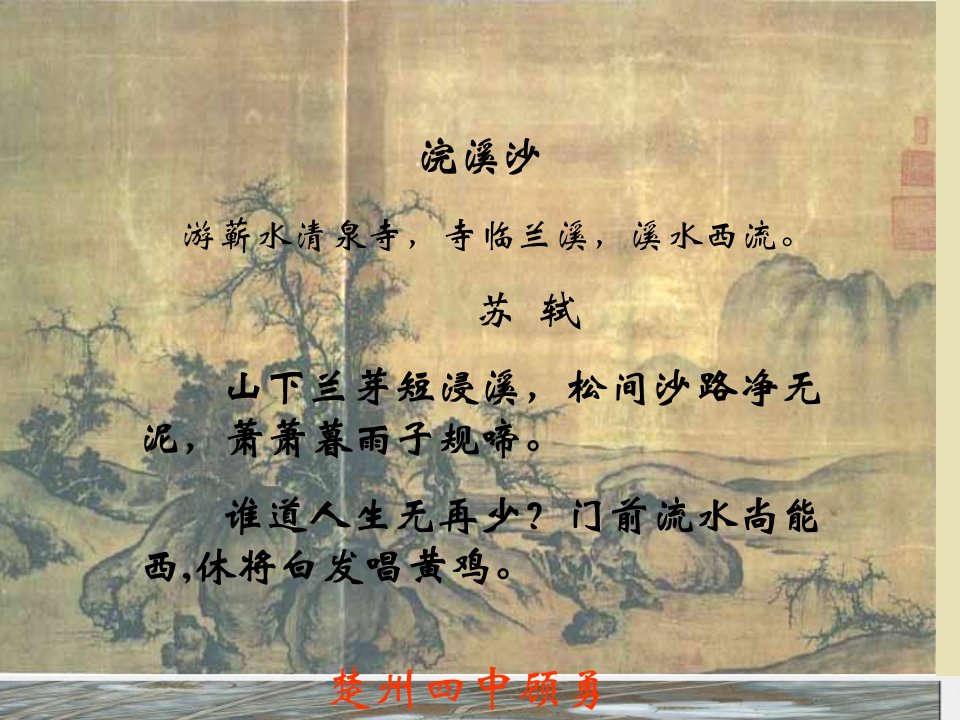 浣溪沙
游蕲水清泉寺，寺临兰溪，溪水西流。
苏 轼
山下兰芽短浸溪，松间沙路净无
泥，萧萧暮雨子规啼。
谁道人生无再少？门前流水尚能
西,休将白发唱黄鸡。
楚州四中顾勇